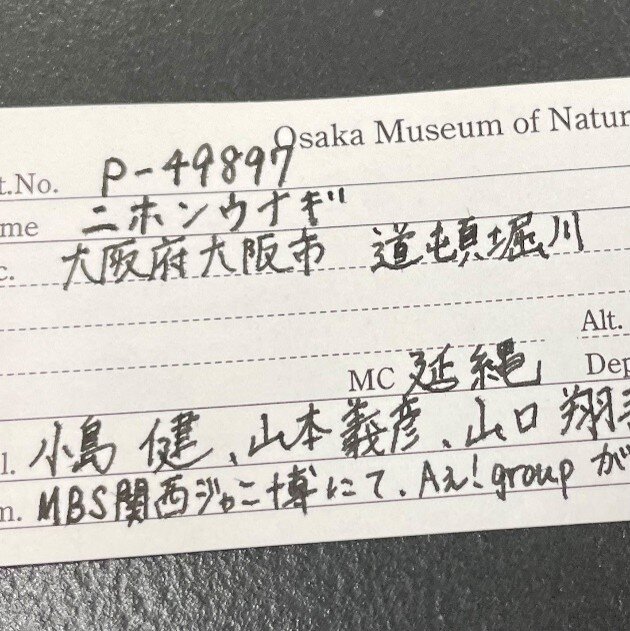 Osaka Museum of Natur
t.No. P-49897
me ニホンウナギ
c. 大阪府大阪市 道頓堀川
Alt.
MC 延縄 Dep
l. 小島 健、山本義彦、山口 翔
n. MBS関西ジャニ博にて、Aぇ!groupが